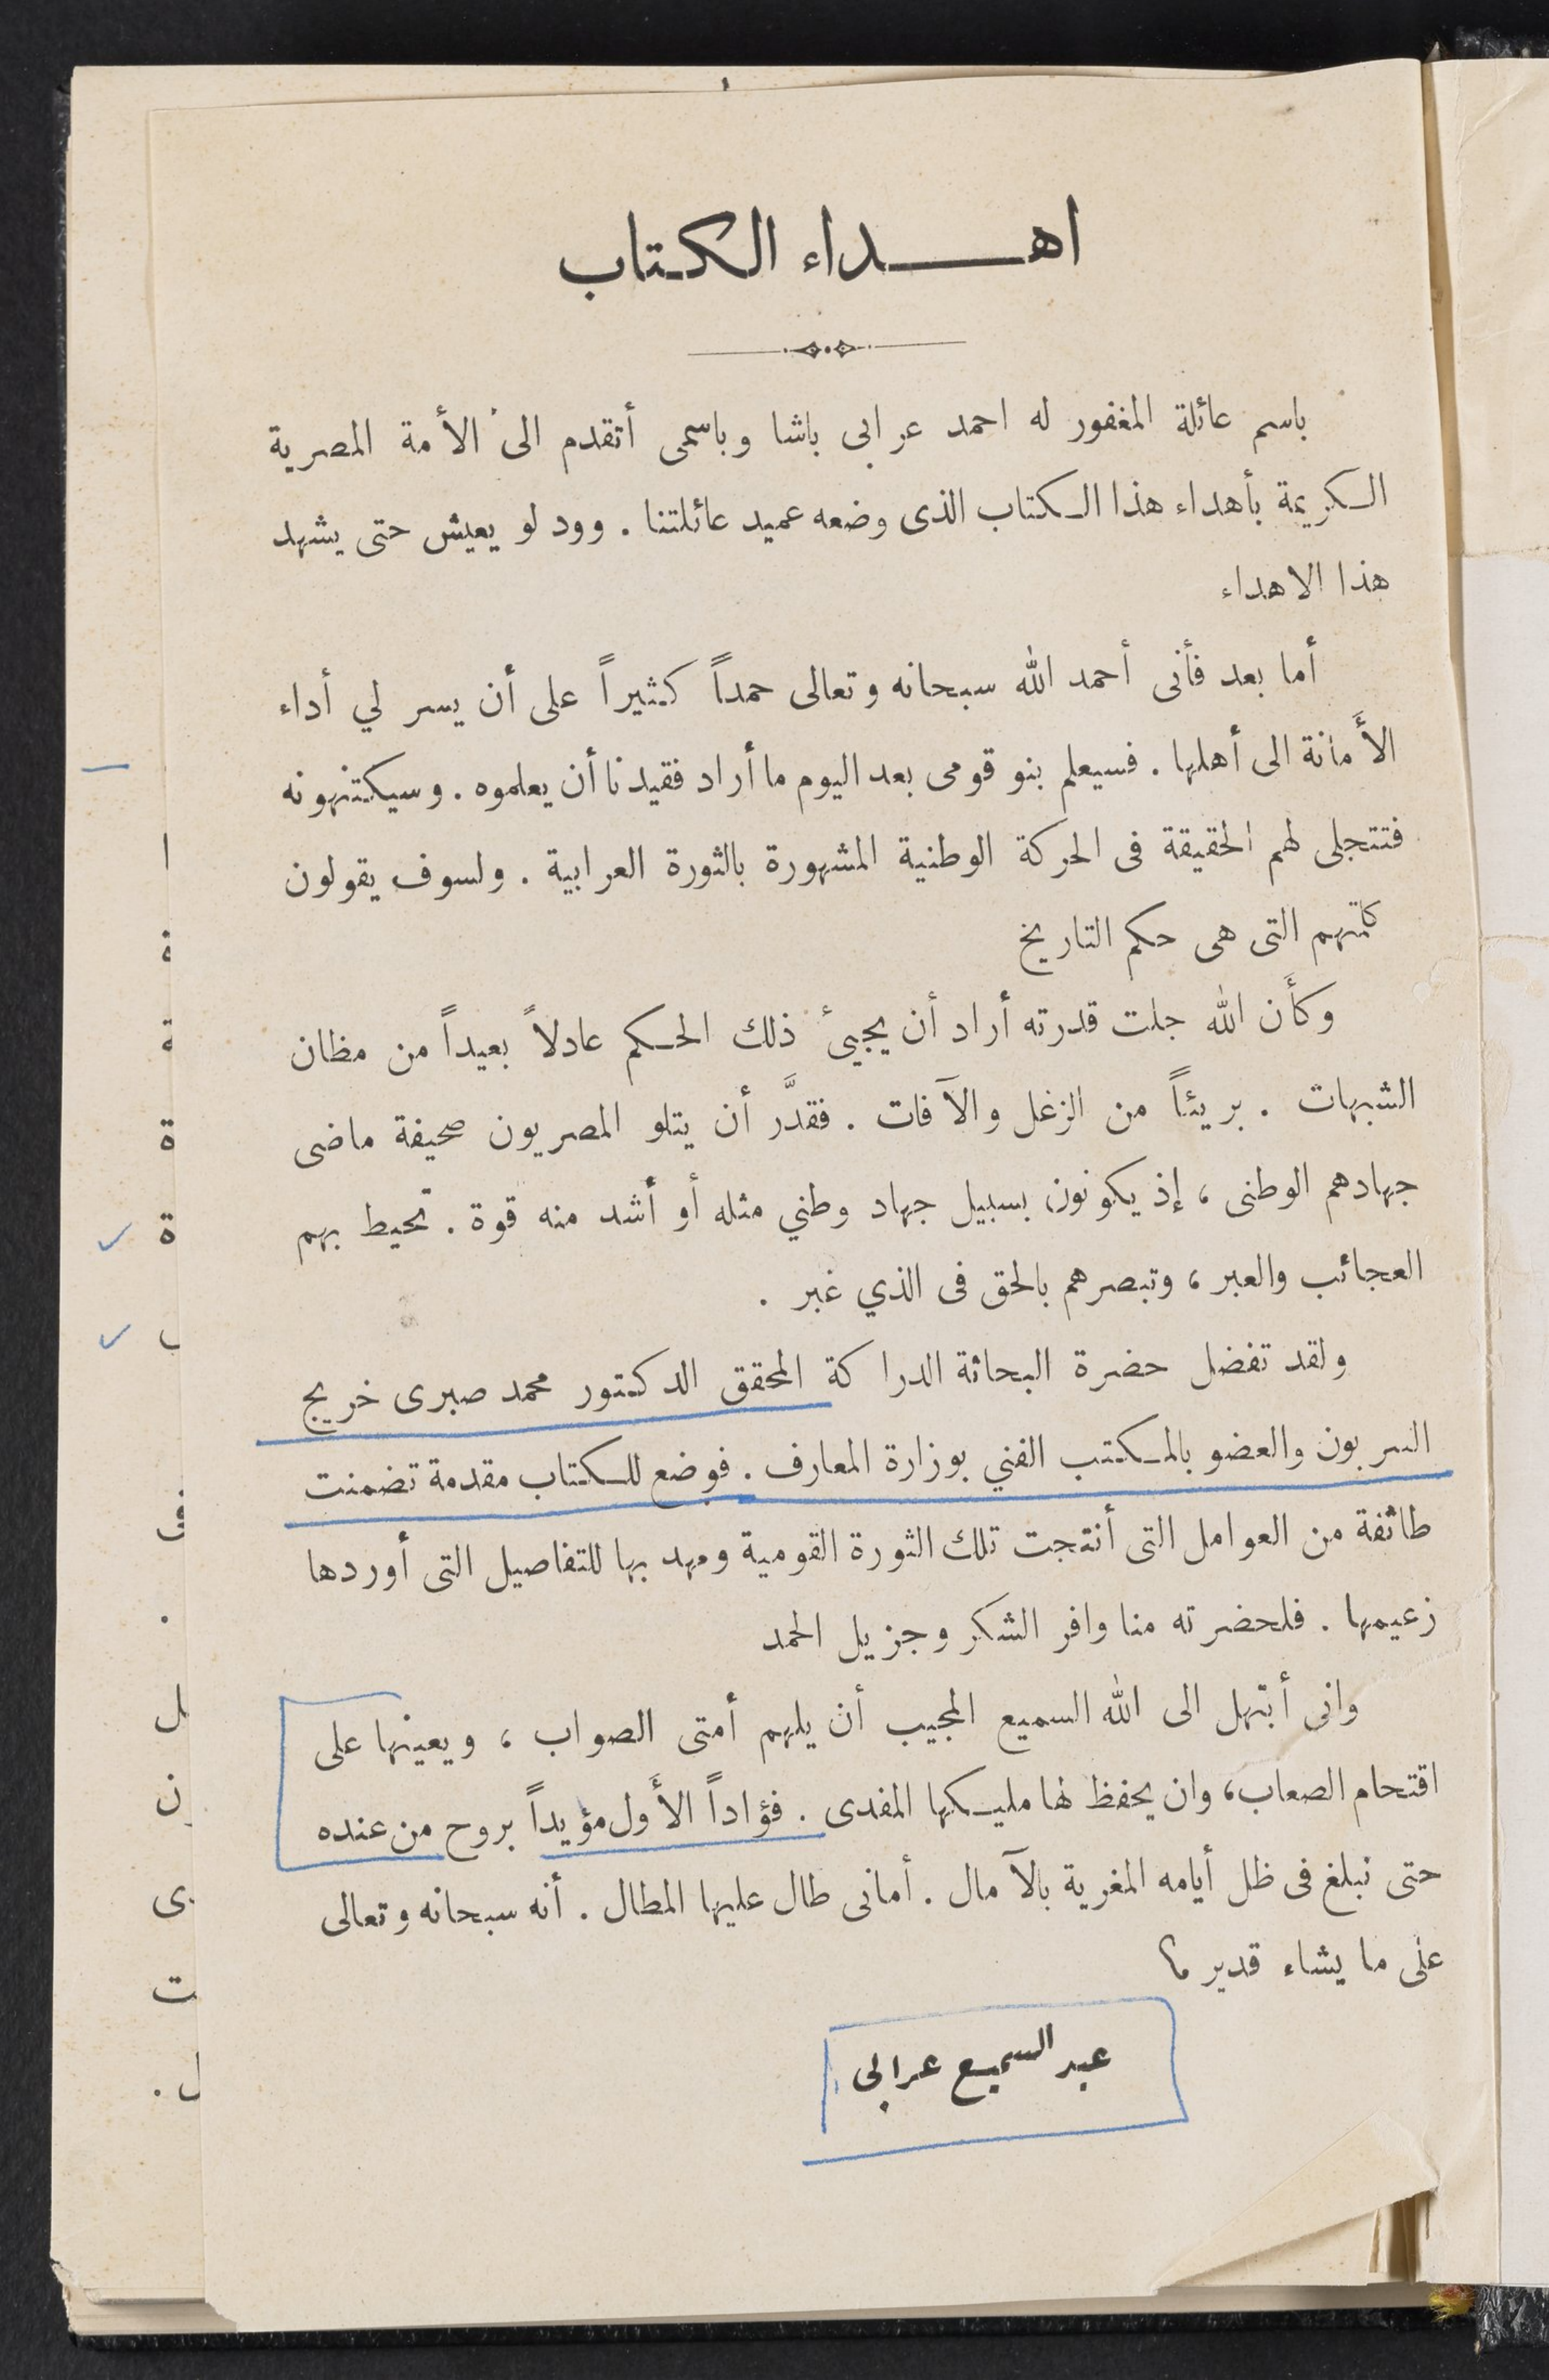 اهداء الكتاب
باسم عائلة المغفور له احمد عرابى باشا وباسمى أتقدم الى الأمة المصرية
الكريمة بأهداء هذا الكتاب الذى وضعه عميد عائلتنا . وود لو يعيش حتى يشهد
هذا الاهداء
أما بعد فأنى أحمد الله سبحانه وتعالى حمداً كثيراً على أن يسر لي أداء
الأَمانة الى أهلها . فسيعلم بنو قومى بعد اليوم ما أراد فقيدنا أن يعلموه . وسيكتنهونه
فتتجلى لهم الحقيقة فى الحركة الوطنية المشهورة بالثورة العرابية . ولسوف يقولون
كلمتهم التى هى حكم التاريخ
وكأَن الله جلت قدرته أراد أن يجيئ ذلك الحكم عادلاً بعيداً من مظان
الشبهات . بريئاً من الزغل والآفات . فقدَّر أن يتلو المصريون صحيفة ماضى
جهادهم الوطنى ، إذ يكونون بسبيل جهاد وطني مثله أو أشد منه قوة . تحيط بهم
العجائب والعبر ، وتبصرهم بالحق فى الذي غبر .
ولقد تفضل حضرة البحاثة الدراكة المحقق الدكتور محمد صبرى خريج
السربون والعضو بالمكتب الفني بوزارة المعارف . فوضع للكتاب مقدمة تضمنت
طائفة من العوامل التى أنتجت تلك الثورة القومية ومهد بها للتفاصيل التى أوردها
زعيمها . فلحضرته منا وافر الشكر وجزيل الحمد
وانى أبتهل الى الله السميع المجيب أن يلهم أمتى الصواب ، ويعينها على
اقتحام الصعاب ، وان يحفظ لها مليكها المفدى . فؤاداً الأَول مؤيداً بروح من عنده
حتى نبلغ فى ظل أيامه المغرية بالآمال . أمانى طال عليها المطال . أنه سبحانه وتعالى
على ما يشاء قدير ؟
عبد السميع عرابى